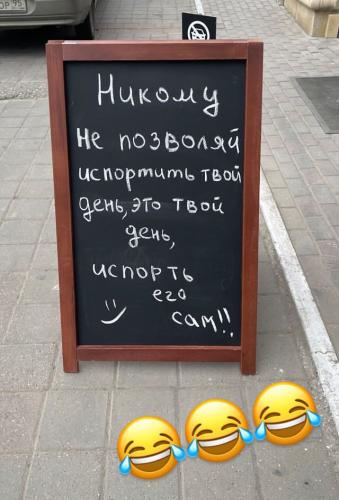 Никому
не позволяй
испортить твой
день, это твой
день,
испорть
его
сам!!